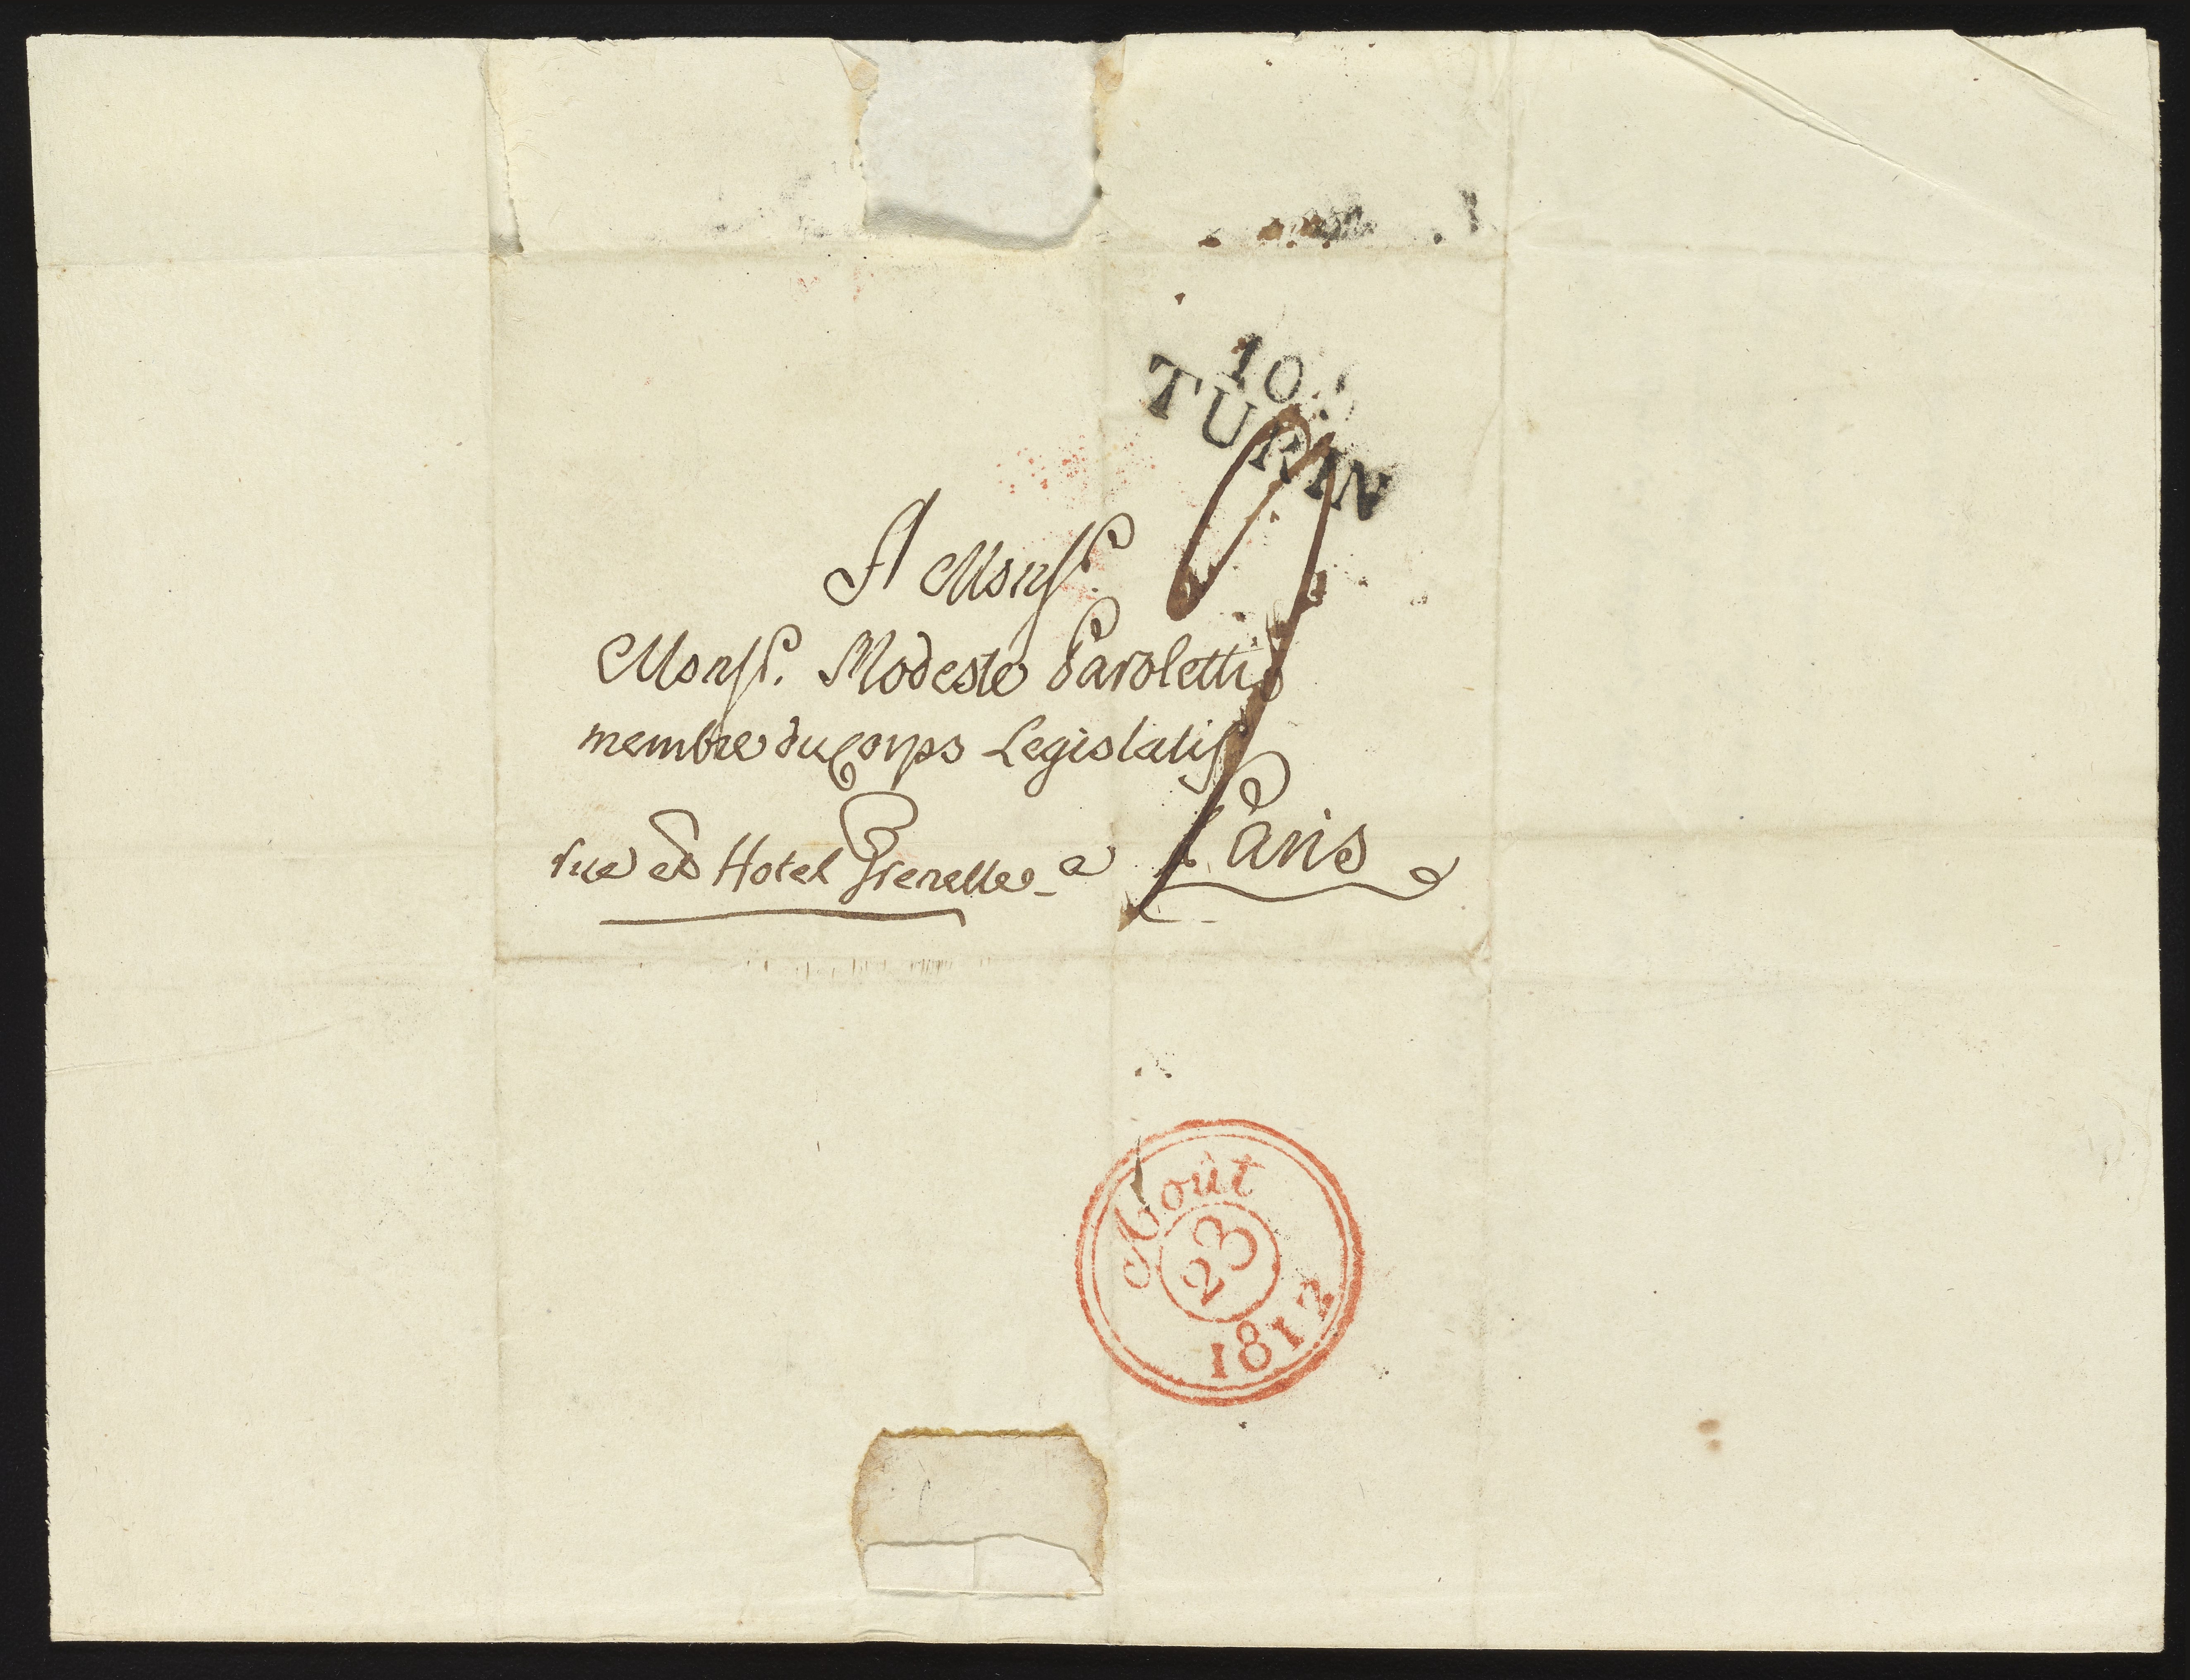 10
TURIN
A Monsr.
Monsr. Modeste Paroletti
membre du Corps Legislatif
rue et Hotel Grenelle - a Paris
Aoüt
23
1812